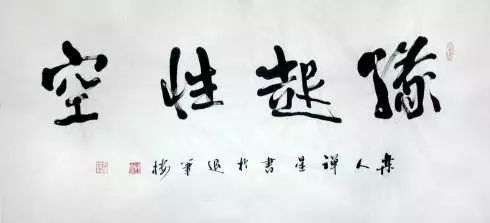 緣起性空
人禅星書於退筆樓